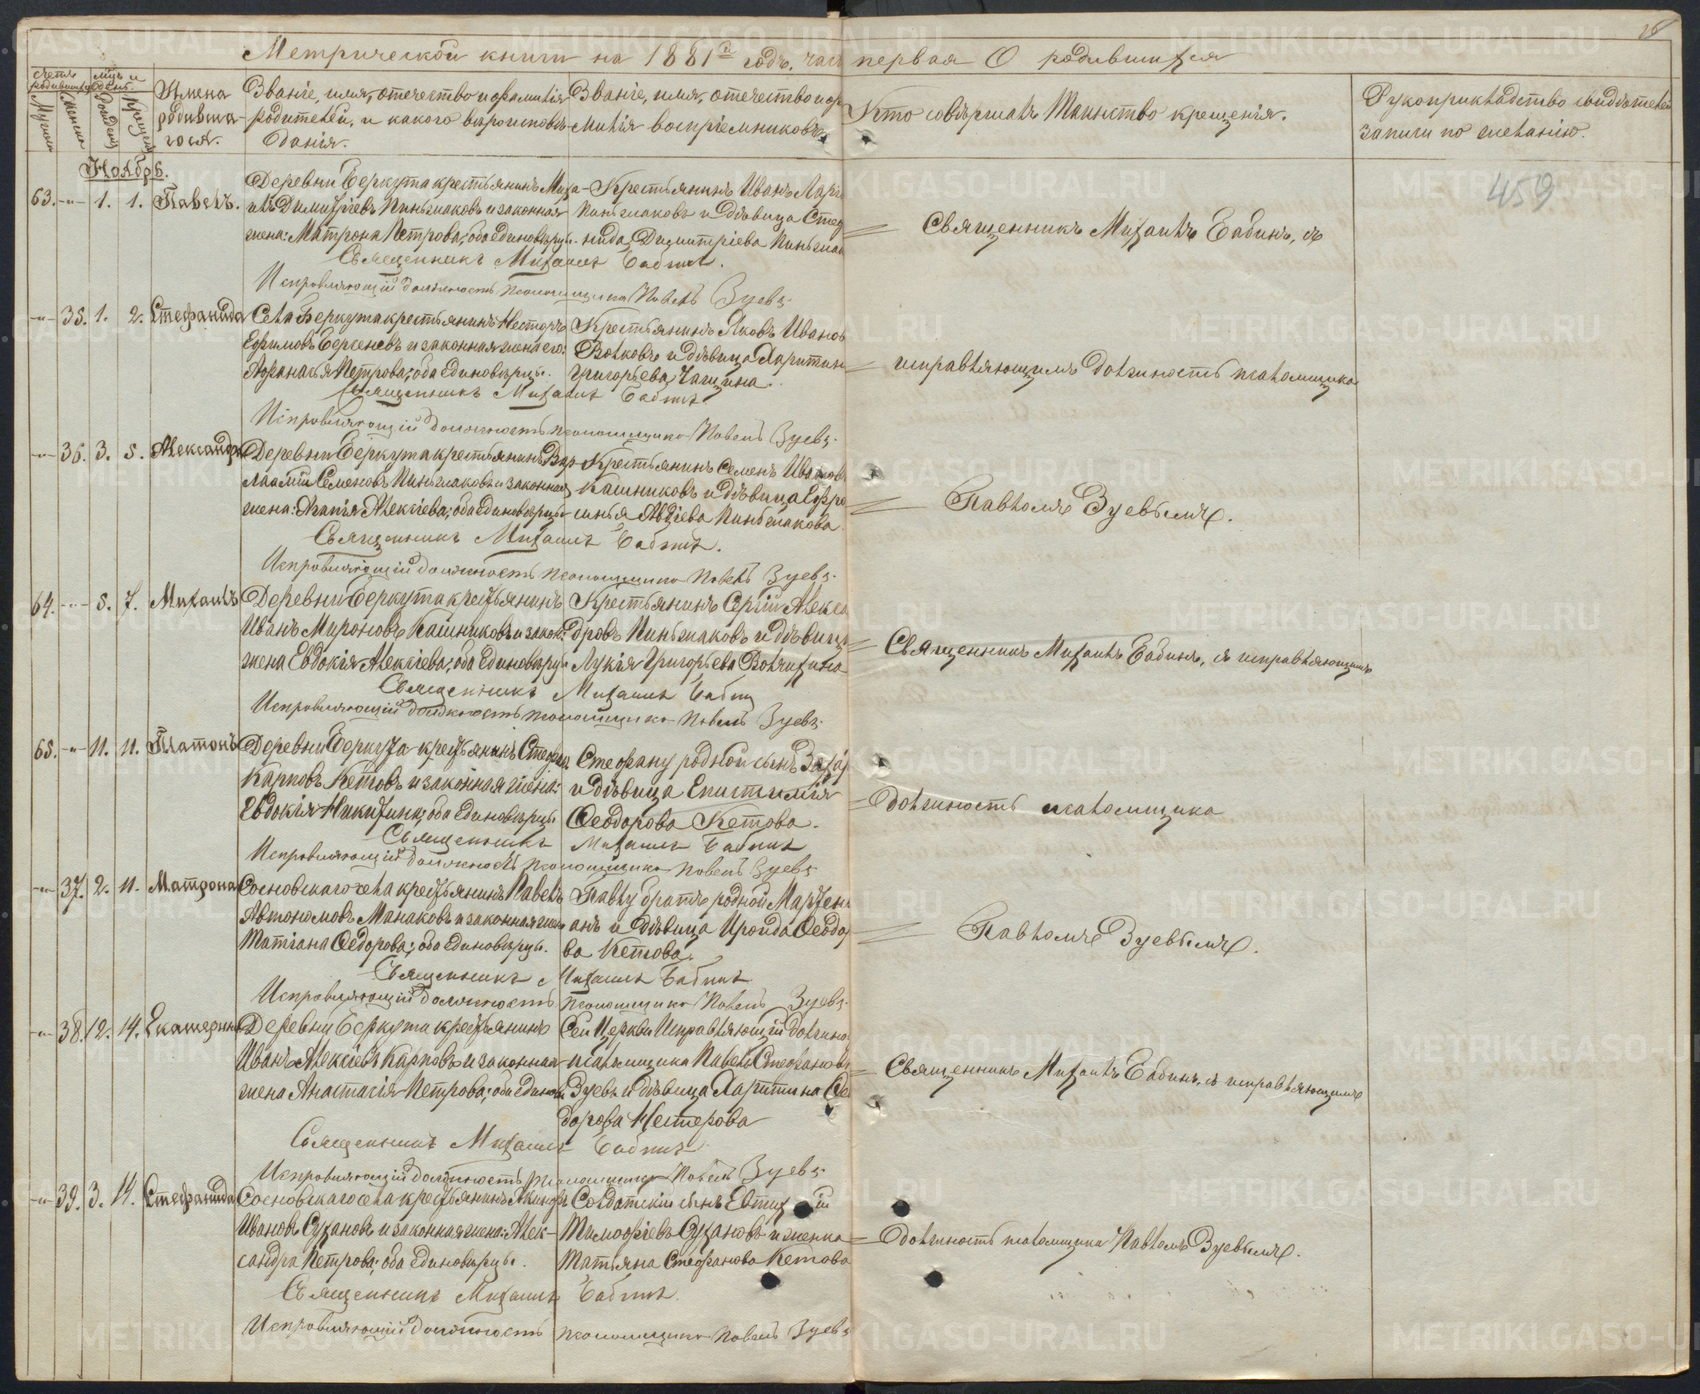 Метрической книги на 1881й годъ. часть первая О родившихся
счетъ родившихся
мць и день
Имена родившагося.
Званіе, имя, отечество и фамилія родителей, и какого вѣроисповѣданія.
Званіе, имя, отечество и фамилія воспріемниковъ
Кто совѣршалъ Таинство крещенія.
Рукоприкладство свидѣтелей записи по желанію.
Ноябрь.
459
63. -"- 1. 1. Павелъ.
Деревни Беркута крестьянинъ Миха-
илъ Димитріевъ Пиньжаковъ и законная
жена: Матрона Петрова; оба единовѣрцы.
Крестьянинъ Иванъ
Пиньжаковъ и дѣвица
нида Димитріева
Священникъ Михаилъ Бабинъ, съ
Священникъ Михаилъ Бабинъ.
Исправляющій должность псаломщика Павелъ Зуевъ.
-"- 35. 1. 2. Стефанида
Села Беркута крестьянинъ Несторъ
Ефимовъ и законная жена его:
Петрова; оба единовѣрцы.
Крестьянинъ Яковъ Иванов
и дѣвица Харитин
Григорьева
исправляющимъ должность псаломщика
Священникъ Михаилъ Бабинъ
Исправляющій должность псаломщика Павелъ Зуевъ.
-"- 36. 3. 5. Александра
Деревни Беркута крестьянинъ Вар-
лаамій Семеновъ Пиньжаковъ и законная
жена: Агапія Алексіева; оба единовѣрцы
Крестьянинъ Семенъ
Кашниковъ и дѣвица Ефро
синья Авдіева Пиньжакова.
Павломъ Зуевымъ.
Священникъ Михаилъ Бабинъ.
Исправляющій должность псаломщика Павелъ Зуевъ.
64. -"- 5. 7. Михаилъ
Деревни Беркута крестьянинъ
Иванъ Мироновъ Кашниковъ и закон:
жена Евдокія Алексіева; оба единовѣрцы
Крестьянинъ Сергій Алекса
дровъ Пиньжаковъ и дѣвица
Лукія Григорьева
Священникъ Михаилъ Бабинъ, съ исправляющимъ
Священникъ Михаилъ Бабинъ
Исправляющій должность псаломщика Павелъ Зуевъ.
65. -"- 11. 11. Платонъ
Деревни Беркута крестьянинъ Стефанъ
Карповъ Кетовъ и законная жена:
Евдокія Никитина; оба единовѣрцы
Стефану родной сынъ Захар
и дѣвица Епистимія
Ѳеодорова Кетова.
должность псаломщика
Священникъ Михаилъ Бабинъ
Исправляющій должность псаломщика Павелъ Зуевъ.
-"- 37. 2. 11. Матрона
Сосновскаго села крестьянинъ Павелъ
Автономовъ Манаковъ и законная жена
Татіана Ѳедорова; оба единовѣрцы.
Павлу братъ родной
и дѣвица Ираида Ѳеодор
ва Кетова.
Павломъ Зуевымъ.
Священникъ Михаилъ Бабинъ
Исправляющій должность псаломщика Павелъ Зуевъ.
-"- 38. 12. 14. Екатерина
Деревни Беркута крестьянинъ
Иванъ Алексіевъ Карповъ и законная
жена Анастасія Петрова; оба единов
Сей Церкви Исправляющій должнос
псаломщика Павелъ Стефановъ
Зуевъ и дѣвица Харитина Ѳе
дорова Нестерова
Священникъ Михаилъ Бабинъ, съ исправляющимъ
Священникъ Михаилъ Бабинъ
Исправляющій должность псаломщика Павелъ Зуевъ.
-"- 39. 3. 14. Стефанида
Сосновскаго села крестьянинъ
Ивановъ Сухановъ и законная жена: Алек-
сандра Петрова; оба единовѣрцы.
Солдатскій сынъ
Тимофіевъ Сухановъ и женка
Татьяна Стефанова Кетова
должность псаломщика Павломъ Зуевымъ.
Священникъ Михаилъ Бабинъ.
Исправляющій должность псаломщика Павелъ Зуевъ
METRIKI.GASO-URAL.RU